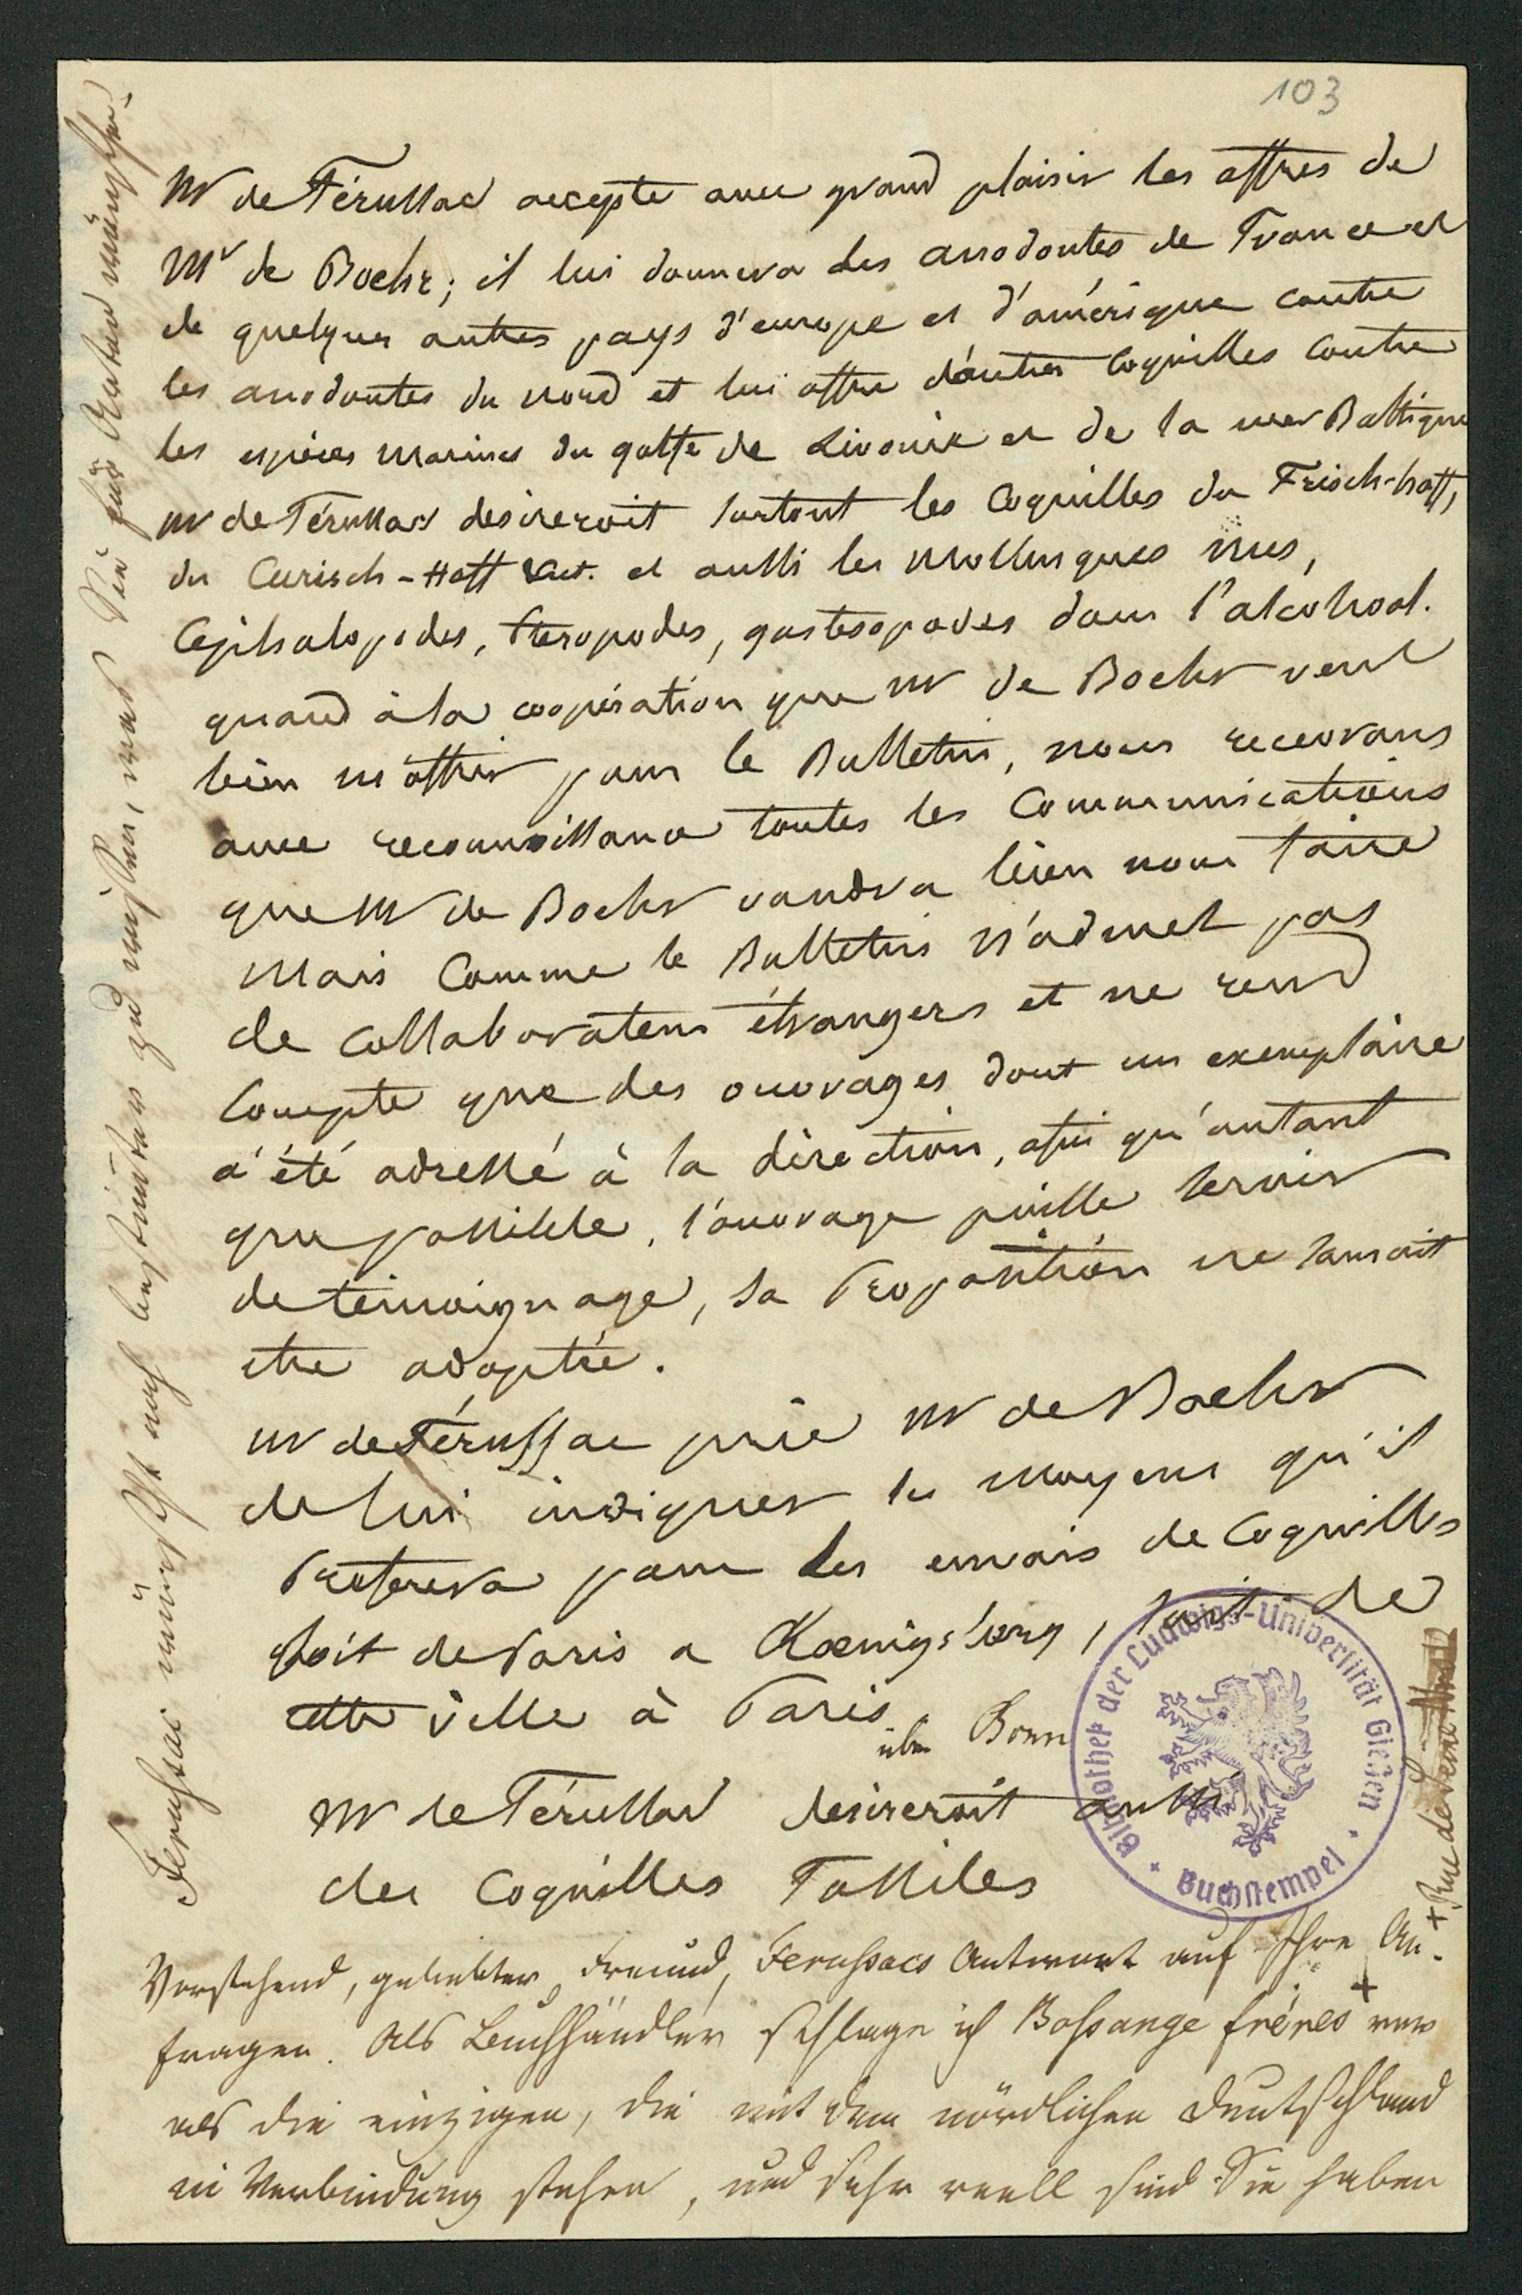 103
Mr de Férussac accepte avec grand plaisir les offres de
Mr de Baehr; il lui donnera des anodontes de France et
de quelques autres pays d'europe et d'amérique contre
les anodontes du nord et lui offre d'autres Coquilles contre
les espèces marines du golfe de Livonie et de la mer Baltique
Mr de Férussac desireroit surtout les Coquilles du Frisch-haff,
du Curisch-Haff &ct. et aussi les Mollusques nus,
Cephalopodes, Pteropodes, gasteropodes dans l'alcohool.
quand à la coopération que Mr de Baehr veut
bien m'offrir pour le Bulletin, nous recevrons
avec reconnoissance toutes les Communications
que Mr de Baehr voudra bien nous faire
Mais Comme le Bulletin n'admet pas
de Collaborateurs étrangers et ne rend
Compte que des ouvrages dont un exemplaire
a été adressé à la direction, afin qu'autant
que possible, l'ouvrage puisse servir
de témoignage, sa Proposition ne sauroit
etre adoptée.
Mr de Férussac prie Mr de Baehr
de lui indiquer les moyens qu'il
Preferera pour les envois de Coquilles
soit de Paris a Kœnigsberg, soit de
cette ville à Paris.
über Bonn
Mr de Férussac desireroit aussi
des Coquilles Fossiles
Vorstehend, geliebter Freund, Ferussacs Antwort auf Ihre An-
fragen. Als Buchhändler schlage ich Bossange frères + vor
als die einzigen, die mit dem nördlichen Deutschland
in Verbindung stehen, und sehr reell sind. Sie haben
+ Rue de Seine
Ferussac wünscht noch baldmöglichst zu wissen, was Sie für Naten wünschen.
Bibliothek der Ludwigs-Universität Gießen
Buchstempel